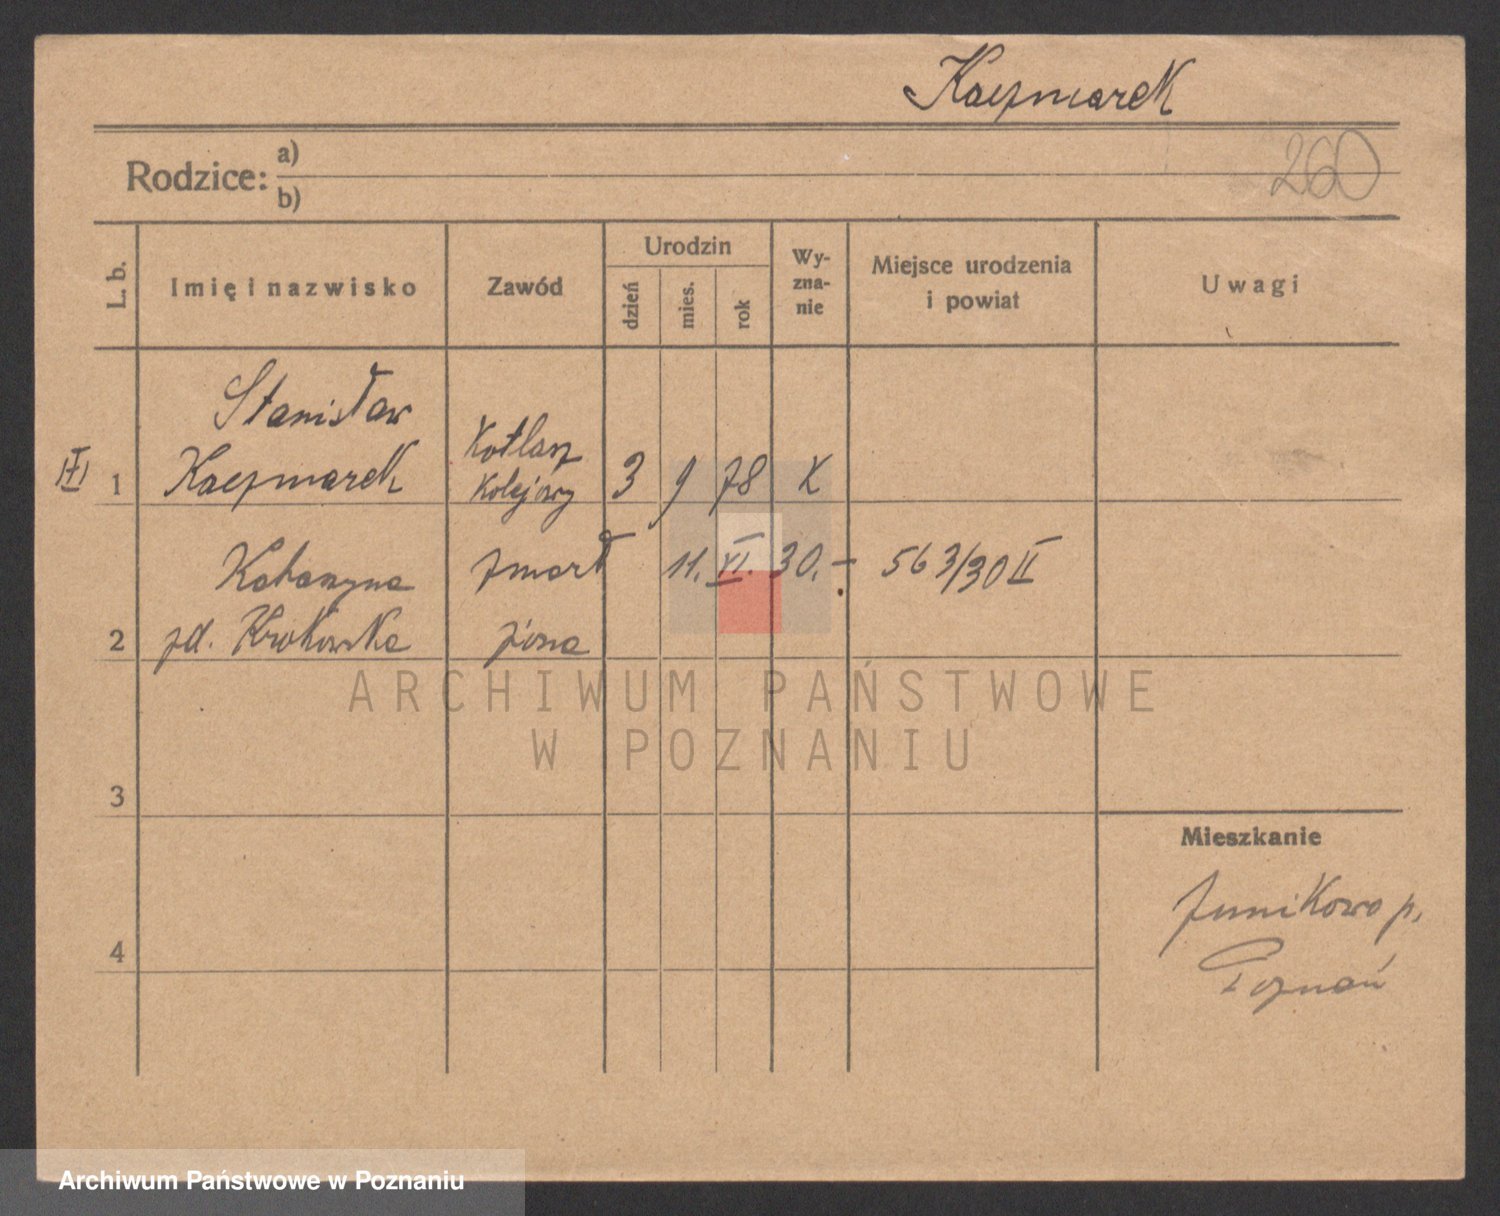 Kaczmarek
260
Rodzice:
a)
b)
L. b.
Imię i nazwisko
Zawód
Urodzin
dzień
mies.
rok
Wy-
zna-
nie
Miejsce urodzenia
i powiat
Uwagi
Stanisław
1 Kaczmarek
Kotlarz
Kolejowy
3 9 78 K
Katarzyna
zmarł 11. VI. 30. - 563/30 II
2 zd. Krokowska
żona
ARCHIWUM PAŃSTWOWE
W POZNANIU
3
Mieszkanie
Junikowo p.
Poznań
4
Archiwum Państwowe w Poznaniu